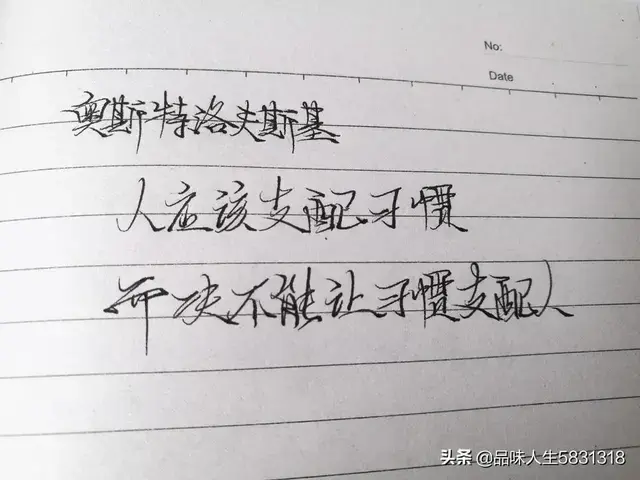 No:
Date
奥斯特洛夫斯基
人应该支配习惯
而决不能让习惯支配人
头条 @品味人生5831318